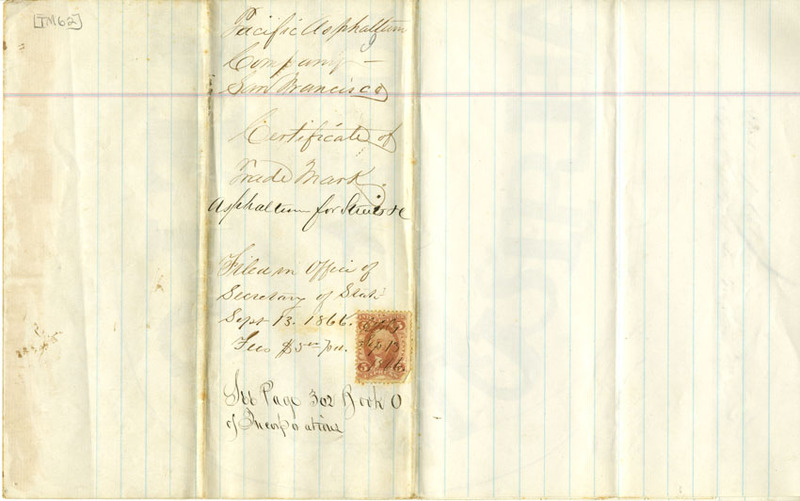 [TM62]
Pacific Asphaltum
Company —
San Francisco
Certificate of
Trade Mark.
Asphaltum for Streets &c
Filed in Office of
Secretary of State
Sept 13. 1866.
Fees $5 00 pd.
See Page 302 Book O
of Incorporations
5 5